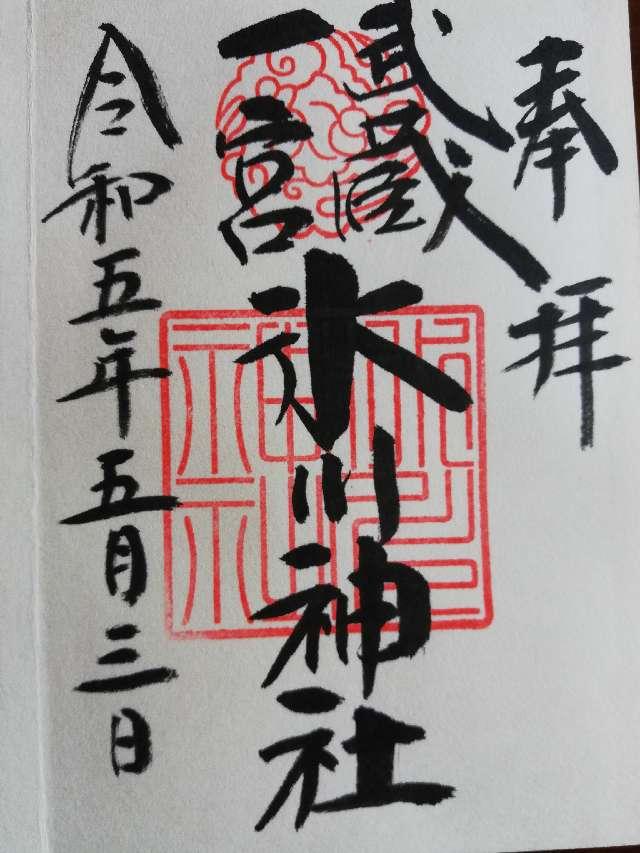 奉拝
武蔵
一宮
氷川神社
令和五年五月三日